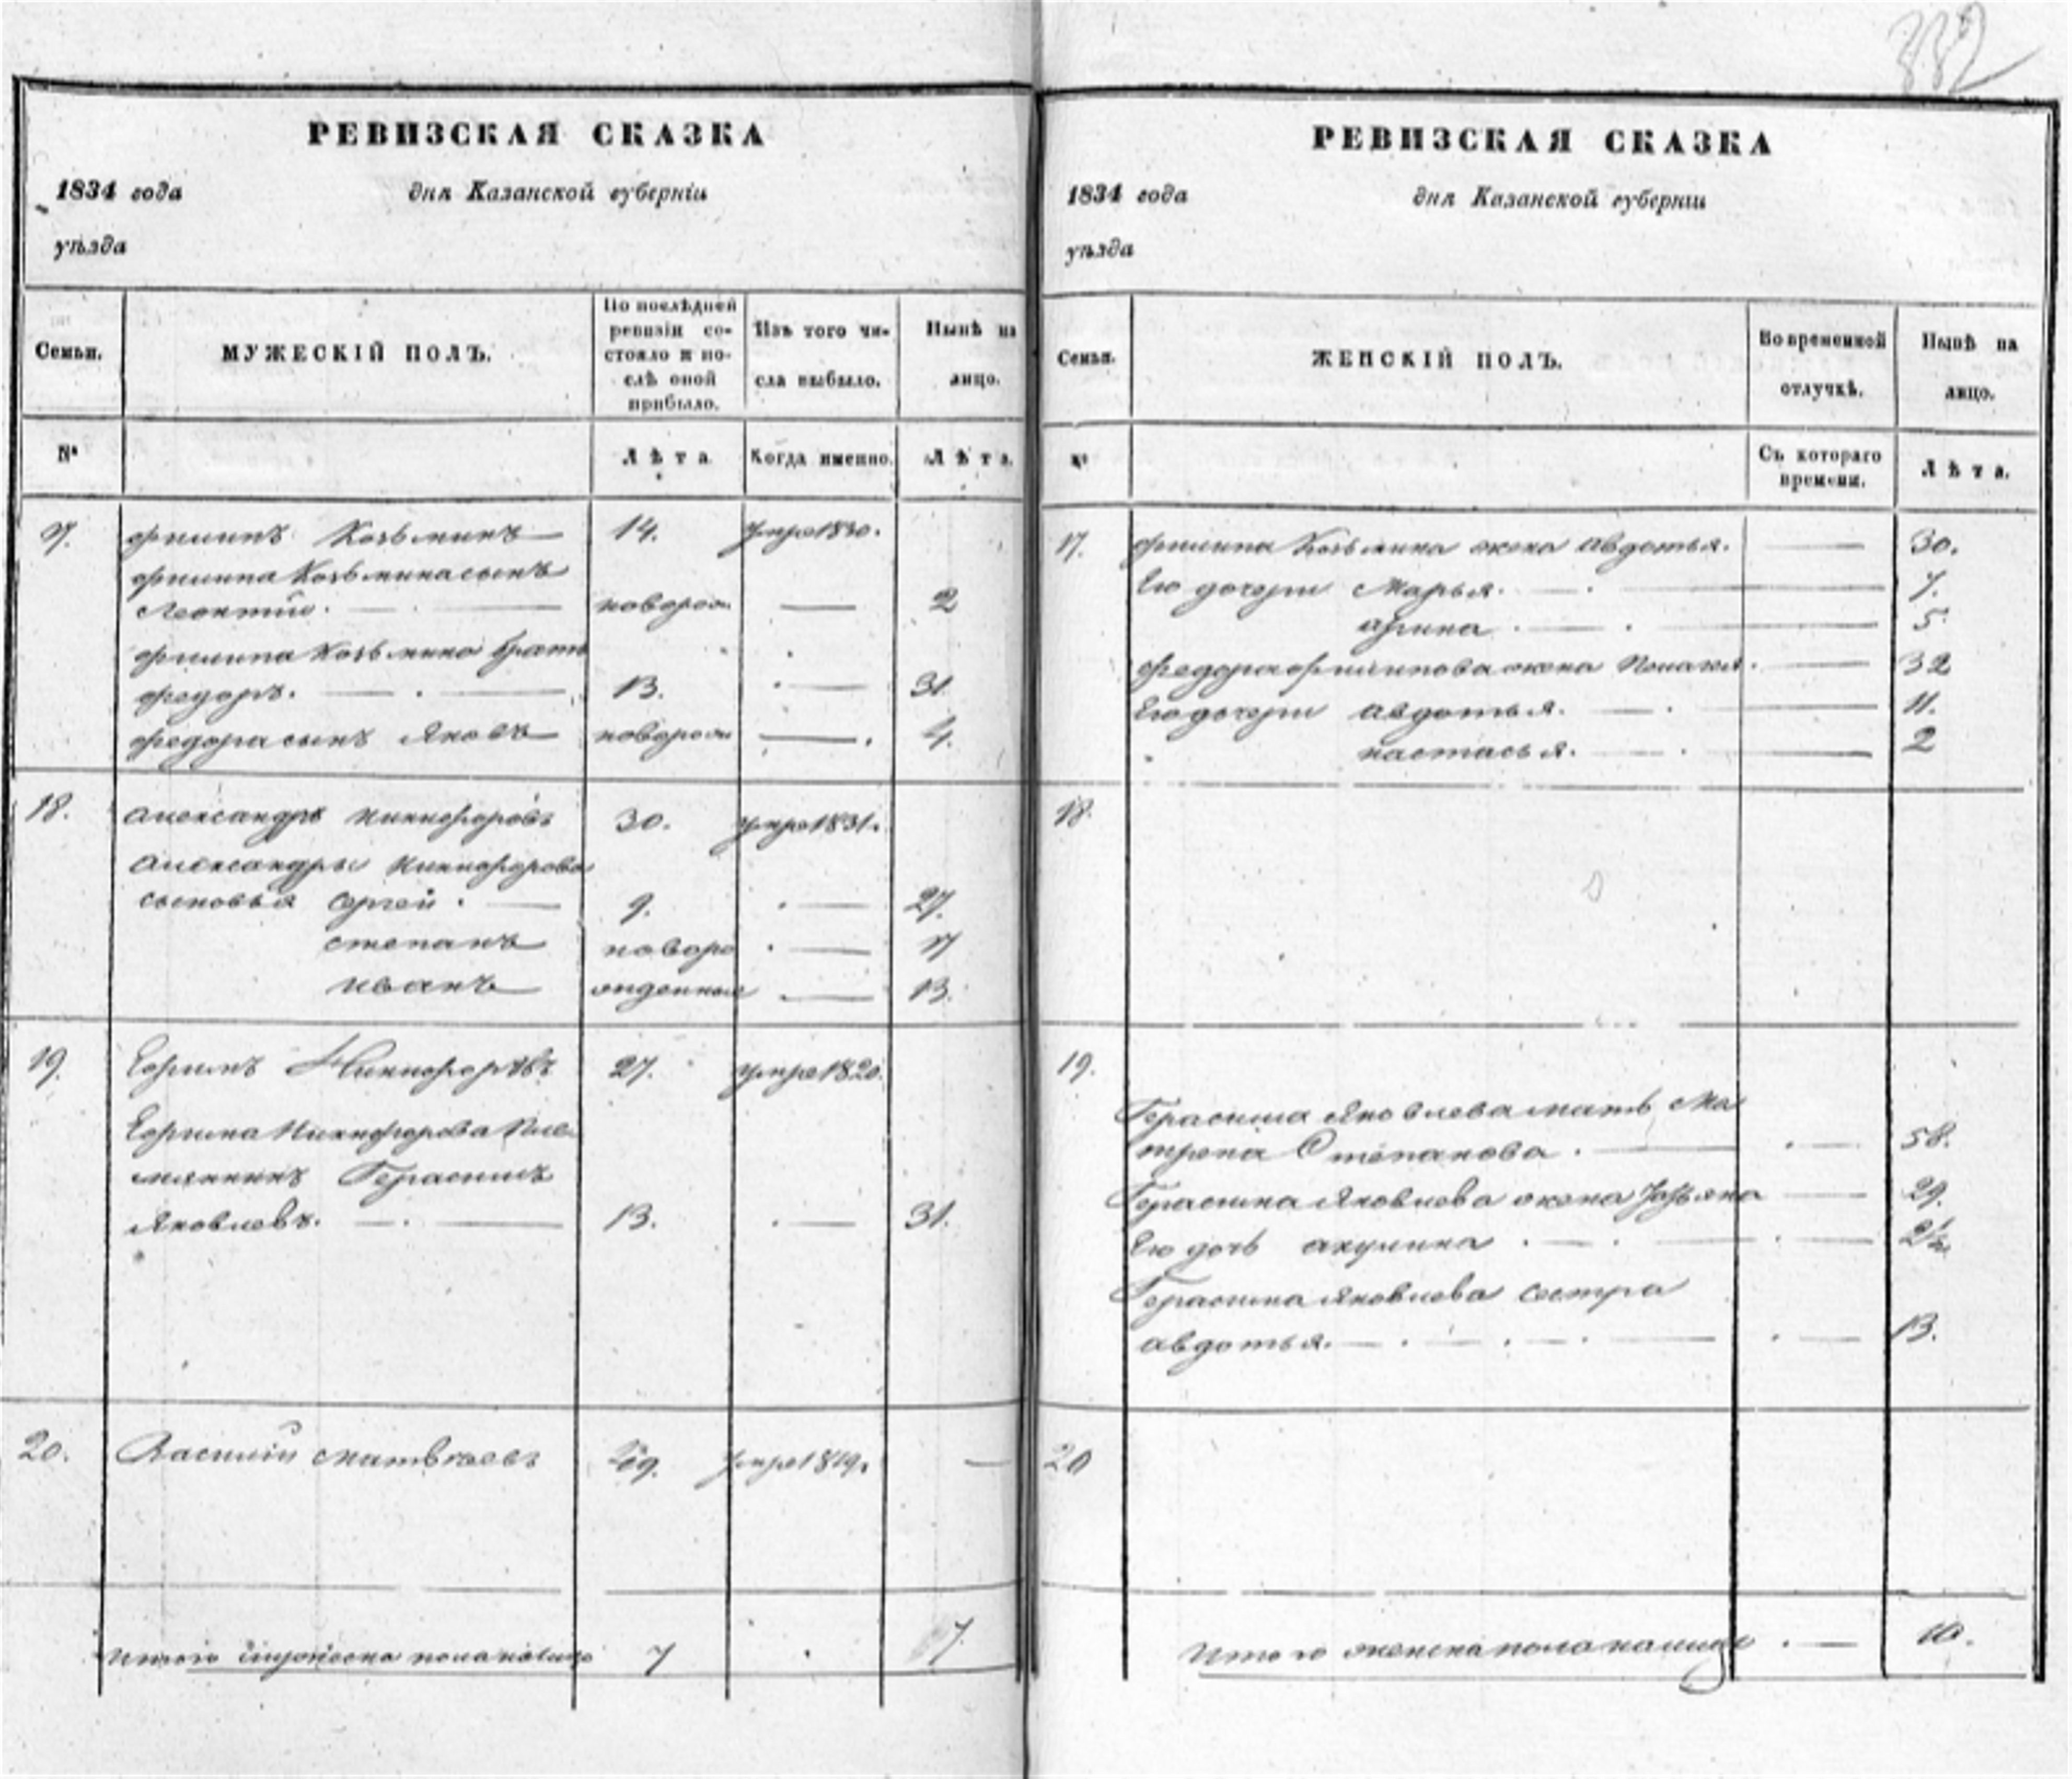 332
РЕВИЗСКАЯ СКАЗКА
1834 года дня Казанской губерніи
уѣзда
Семьи.
МУЖЕСКІЙ ПОЛЪ.
По послѣдней ревизіи состояло и послѣ оной прибыло.
Изъ того числа выбыло.
Нынѣ на лицо.
№
Лѣта
Когда именно.
Лѣта.
17. Филипъ Козьминъ 14. умре 1830.
Филипа Козьмина сынъ
Леонтій. новорож 2
Филипа Козьмина братъ
Федоръ. 13. 31
Федора сынъ Яковъ новорож 4.
18. Александръ Никифоровъ 30. умре 1831.
Александры Никифорова
сыновья Сергей. 9. 27.
Степанъ новоро 17
Иванъ жденные 13.
19. Ефимъ Никифоровъ 27. умре 1820.
Ефима Никифорова пле
мянникъ Герасимъ
Яковлевъ. 13. 31.
20. Василій Матвѣевъ умре 1819.
Итого мужеска пола налицо 7 7.
РЕВИЗСКАЯ СКАЗКА
1834 года дня Казанской губерніи
уѣзда
Семьи.
ЖЕНСКІЙ ПОЛЪ.
Во временной отлучкѣ.
Нынѣ на лицо.
№
Съ котораго времени.
Лѣта.
17. Филипа Козьмина жена Авдотья. 30.
Ево дочери Марья. 7.
Арина. 5.
Федора Филипова жена Пелагея. 32
Ево дочери Авдотья. 11.
Настасья. 2
18.
19.
Герасима Яковлева мать Ма
трена Степанова. 58.
Герасима Яковлева жена Татьяна 29.
Ево дочь Акулина. 2½
Герасима Яковлева сестра
Авдотья. 13.
20
Итого женска пола налицо 10.